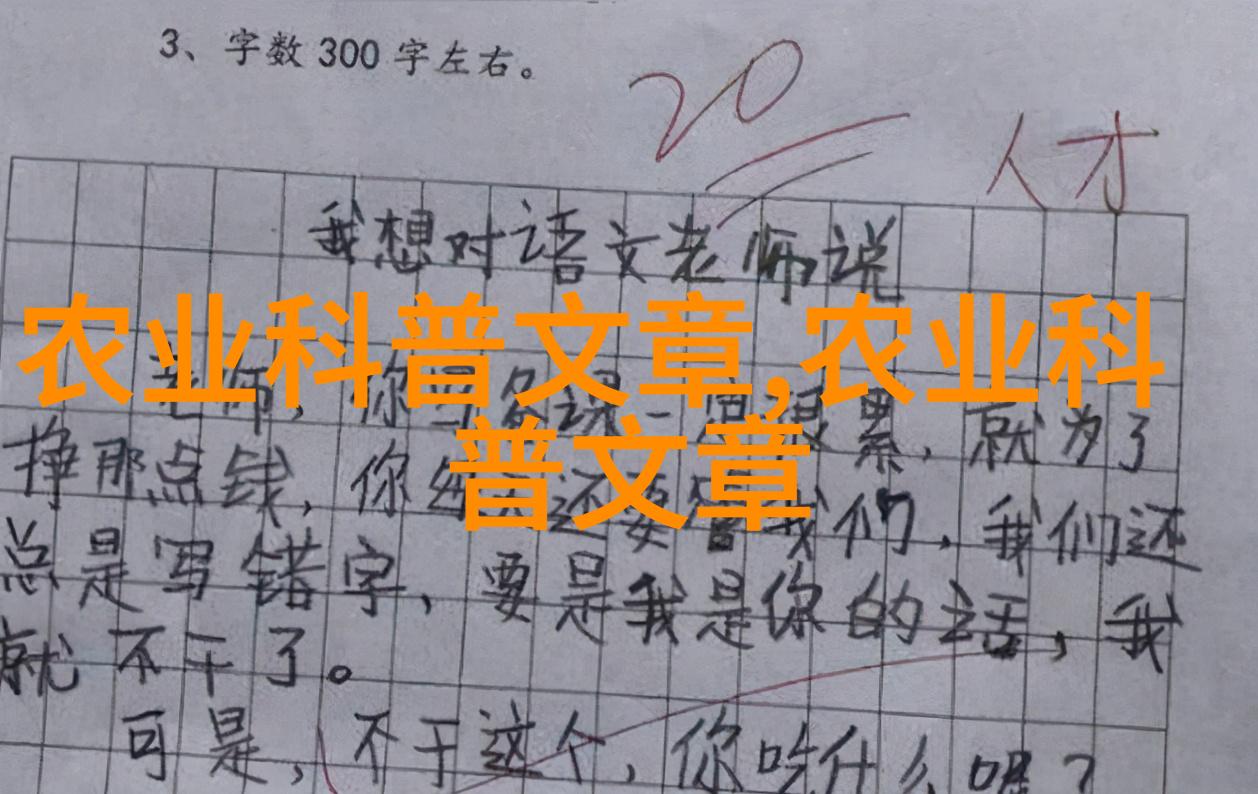 3、字数 300 字左右。
20
人才
我想对语文老师说
农业科普文章,农业科
普文章
老师，你写备课一定很累，就为了
挣那点钱，你每天还要管我们，我们还
总是写错字，要是我是你的话，我
就不干了。
可是，不干这个，你吃什么呢？